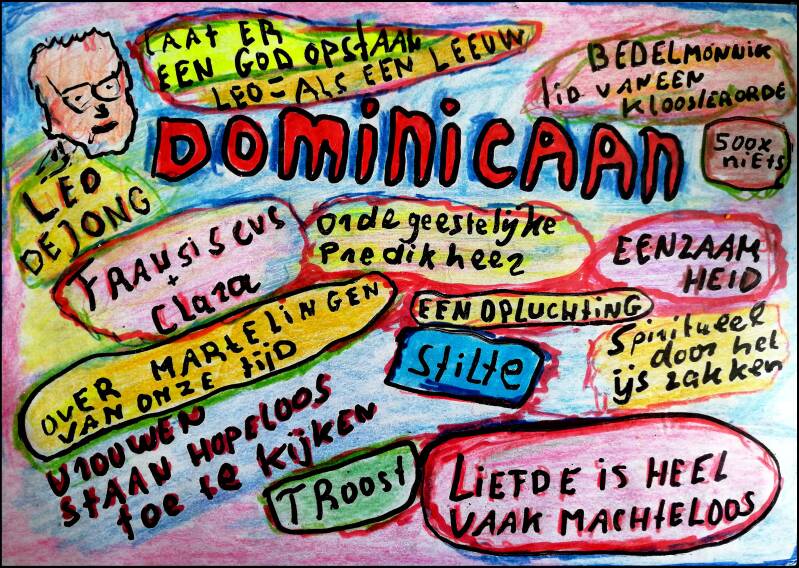 LAAT ER
EEN GOD OPSTAAN
LEO = ALS EEN LEEUW
BEDELMONNIK
lid VAN EEN
KLOOSTERORDE
DOMINICAAN
500x
niets
LEO
DE JONG
FRANSISCUS
+
Clara
orde geestelijke
Predikheer
EENZAAM
HEID
EEN OPLUCHTING
OVER MARTELINGEN
VAN ONZE tijD
Stilte
Spiritueel
door het
ijs zakken
VROUWEN
StAAN HOPELOOS
toe te KijKEN
TROOSt
LiEFDE iS HEEL
VAAK MACHTELOOS